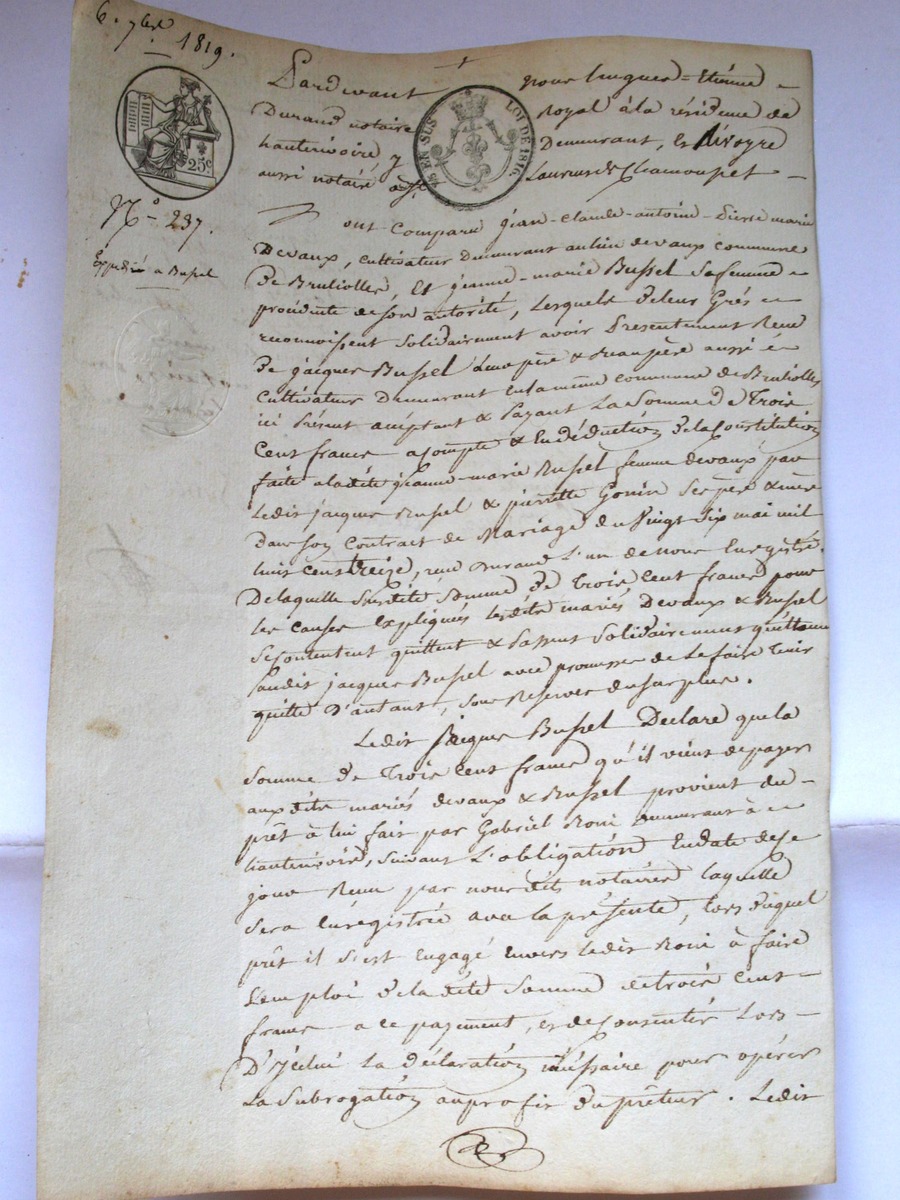 6. 7bre 1819.
25c.
25 EN SUS LOI DE 1816.
N.o 237.
Expédié a Bussel
Pardevant nous hugues-Etienne
Durand notaire Royal à la résidence de
hauterivoire y Demeurant, et
aussi notaire a St Laurent de Chamousset
Ont Comparu jean-Claude-antoine-Pierre marie
Devaux, cultivateur Demeurant au lieu devaux commune
De Brulliolles, Et jeanne-marie Bussel sa femme
procédente de son autorité, Lesquels de leur Grés
reconnoissent Solidairement avoir Presentement Recu
De jacques Bussel Leur père & Beaupère aussi
Cultivateur Demeurant en la même commune de Brulliolles
ici Présent acceptant & Payant La Somme De Trois
Cent francs acompte & En déduction de la Constitution
faite a ladite jeanne-marie Bussel femme devaux par
Ledit jacques Bussel & pierrette Gonin Ses père & mère
Dans son Contract de Mariage du Vingt Six mai mil
huit cent treize, recu Durand L'un de nous Enregistré.
De laquelle Susdite Somme De Trois Cent francs pour
les causes Expliqués lesdits mariés Devaux & Bussel
Se contentent quittent & Passent Solidairement quittance
audit jacques Bussel avec promesse de Le faire Tenir
quitte D'autant, Sous Reserves du Surplus.
Ledit Jacques Bussel Declare que la
Somme De Trois Cent francs qu'il vient de payer
aux dits mariés devaux & Bussel provient du
prêt à lui fait par Gabriel demeurant à
hauterivoire, suivant L'obligation En date de ce
jour Recue par nous dits notaires laquelle
Sera Enregistrée avec la présente, lors duquel
prêt il s'est Engagé Envers ledit à faire
L'emploi de ladite Somme de trois Cent
francs a ce payement, et de Consentir Lors
D'Jcelui La déclaration nécessaire pour opérer
La Subrogation au profit du prêteur. Ledit